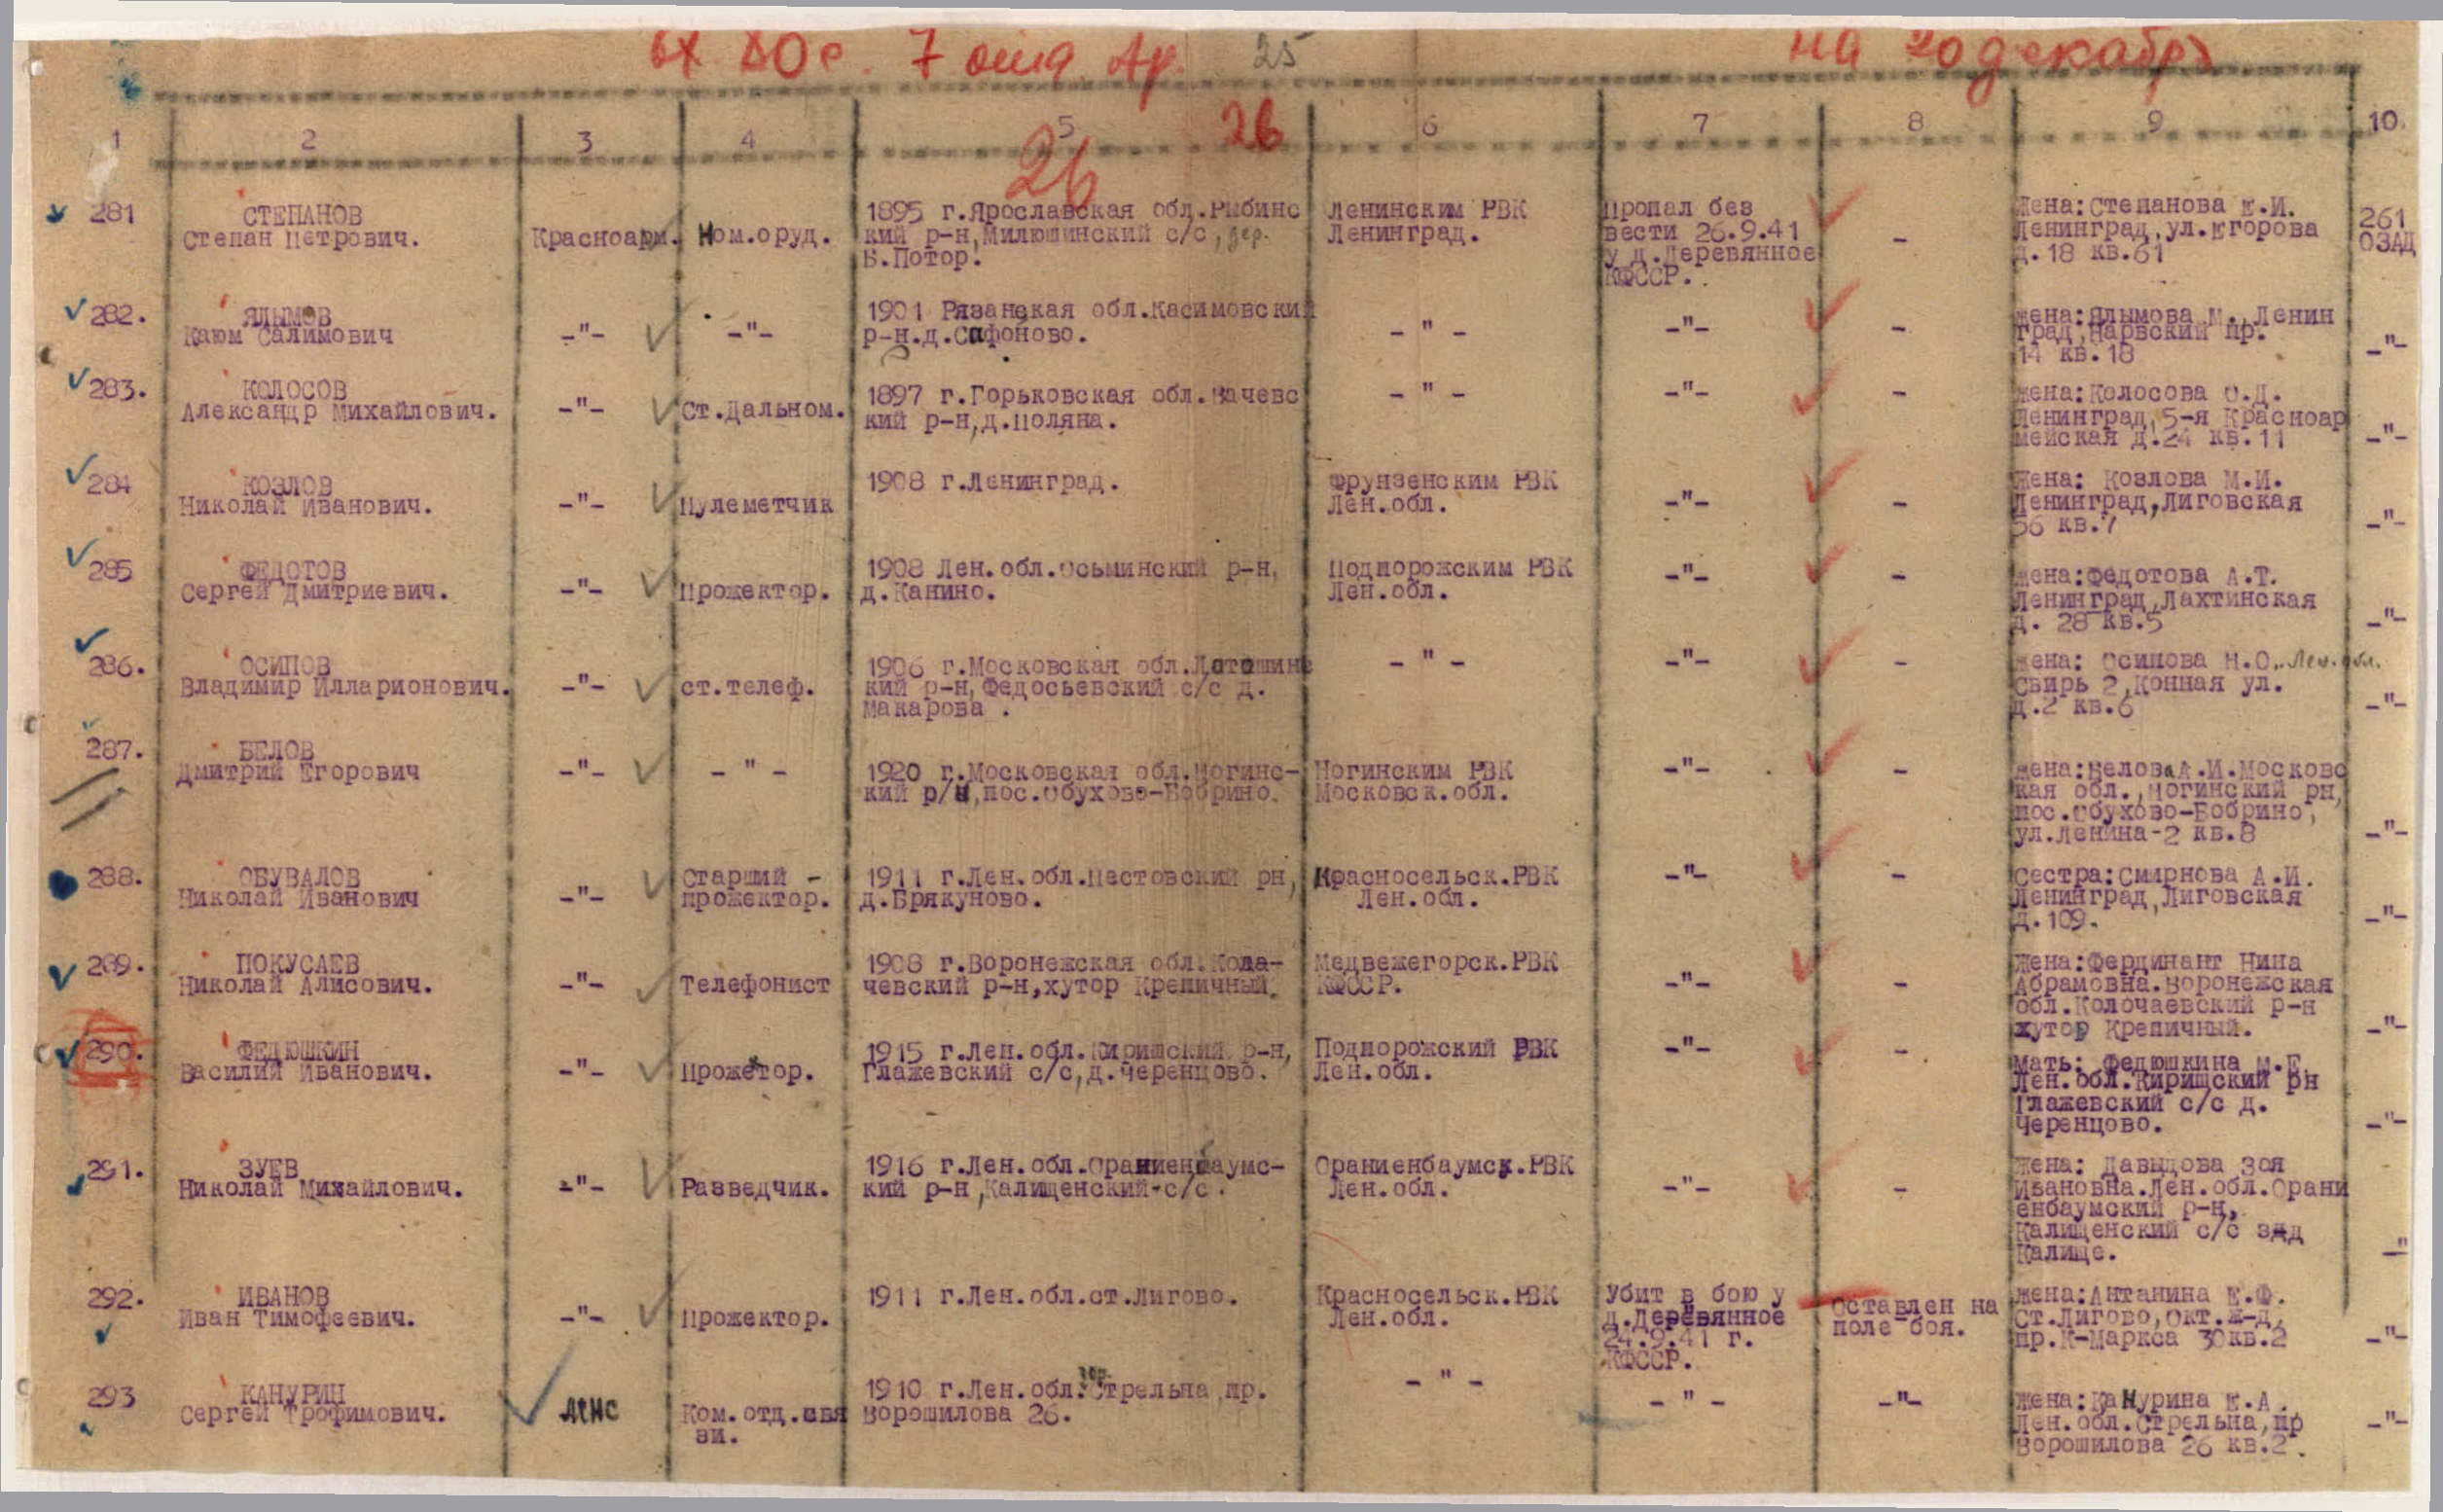 вх 50с. 7 отд. Ар. 25 на 20 декабрь
1 2 3 4 5 6 7 8 9 10.
26 26
281 СТЕПАНОВ
Степан Петрович. Красноарм. Ном.оруд. 1895 г.Ярославская обл.Рыбинс
кий р-н,Милюшинский с/с, дер.
Б.Потор. Ленинским РВК
Ленинград. Пропал без
вести 26.9.41
у д.Деревянное
КФССР. - Жена:Степанова Е.И.
Ленинград,ул.Егорова
д.18 кв.61 261
ОЗАД
282. ЯЛЫМОВ
Каюм Салимович -"- -"- 1901 Рязанская обл.Касимовский
р-н.д.Сафоново. - " - -"- - Жена:Ялымова М. Ленин
град,Нарвский пр.
14 кв.18 -"-
283. КОЛОСОВ
Александр Михайлович. -"- Ст.Дальном. 1897 г.Горьковская обл.Вачевс
кий р-н,д.Поляна. - " - -"- - Жена:Колосова О.Д.
Ленинград,5-я Красноар
мейская д.24 кв.11 -"-
284 КОЗЛОВ
Николай Иванович. -"- Пулеметчик 1908 г.Ленинград. Фрунзенским РВК
Лен.обл. -"- - Жена: Козлова М.И.
Ленинград,Лиговская
56 кв.7 -"-
285 ФЕДОТОВ
Сергей Дмитриевич. -"- Прожектор. 1908 Лен.обл.Осьминский р-н,
д.Канино. Подпорожским РВК
Лен.обл. -"- - Жена:Федотова А.Т.
Ленинград,Лахтинская
д. 28 кв.5 -"-
286. ОСИПОВ
Владимир Илларионович. -"- ст.телеф. 1906 г.Московская обл.Лотошинс
кий р-н,Федосьевский с/с д.
Макарова . - " - -"- - Жена: Осипова Н.О. Лен. обл.
Свирь 2,Конная ул.
д.2 кв.6 -"-
287. БЕЛОВ
Дмитрий Егорович -"- - " - 1920 г.Московская обл.Ногинс-
кий р/н,пос.Обухово-Бобрино. Ногинским РВК
Московск.обл. -"- - Жена:Белова А.И.Московс
кая обл.,Ногинский рн,
пос.Обухово-Бобрино,
ул.Ленина-2 кв.8 -"-
288. ОБУВАЛОВ
Николай Иванович -"- Старший -
прожектор. 1911 г.Лен.обл.Пестовский рн,
д.Брякуново. Красносельск.РВК
Лен.обл. -"- - Сестра:Смирнова А.И.
Ленинград,Лиговская
д.109. -"-
289. ПОКУСАЕВ
Николай Алисович. -"- Телефонист 1908 г.Воронежская обл.Кола-
чевский р-н,хутор Крепичный. Медвежегорск.РВК
КФССР. -"- - Жена:Фердинант Нина
Абрамовна.Воронежская
обл.Колочаевский р-н
хутор Крепичный. -"-
290. ФЕДЮШКИН
Василий Иванович. -"- Прожетор. 1915 г.Лен.обл.Киришский р-н,
Глажевский с/с,д.Черенцово. Подпорожский РВК
Лен.обл. -"- - Мать: Федюшкина М.Е.
Лен.обл.Киришский рн
Глажевский с/с д.
Черенцово. -"-
291. ЗУЕВ
Николай Михайлович. -"- Разведчик. 1916 г.Лен.обл.Ораниенбаумс-
кий р-н,Калищенский-с/с. Ораниенбаумск.РВК
Лен.обл. -"- - Жена: Давыдова Зоя
Ивановна.Лен.обл.Орани
енбаумский р-н,
Калищенский с/с
Калище. -"
292. ИВАНОВ
Иван Тимофеевич. -"- Прожектор. 1911 г.Лен.обл.ст.Лигово. Красносельск.РВК
Лен.обл. Убит в бою у
д.Деревянное
24.9.41 г.
КФССР. Оставлен на
поле боя. Жена:Антанина Е.Ф.
Ст.Лигово,Окт.ж-д,
пр.К-Маркса 30кв.2 -"-
293 КАНУРИН
Сергей Трофимович. Ком.отд.свя
зи. 1910 г.Лен.обл. гор. Стрельна пр.
Ворошилова 26. - " - - " - -"- Жена:Канурина Е.А.
Лен.обл.Стрельна,пр
Ворошилова 26 кв.2. -"-